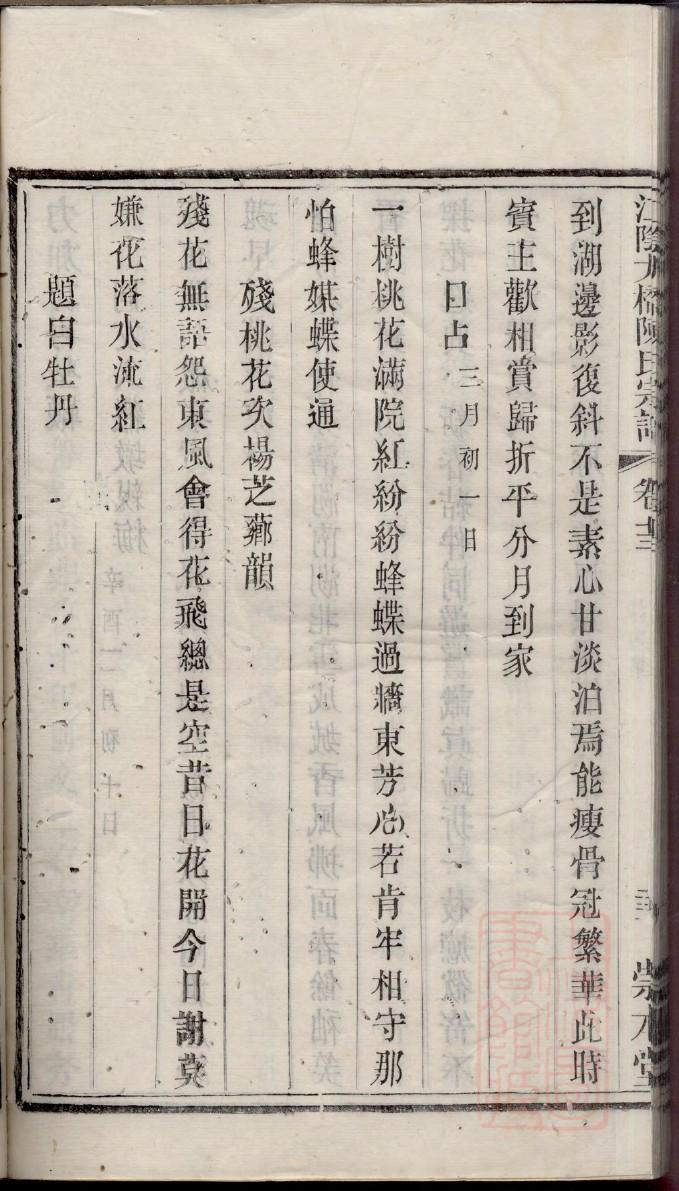 江陰九橋陳氏宗譜 卷十三
崇本堂
到湖邊影復斜不是素心甘淡泊焉能瘦骨冠繁華此時
賓主歡相賞歸折平分月到家
口占 三月初一日
一樹桃花滿院紅紛紛蜂蝶過牆東芳心若肯牢相守那
怕蜂媒蝶使通
殘桃花次楊芝薌韻
殘花無語怨東風會得花飛總是空昔日花開今日謝莫
嫌花落水流紅
題白牡丹